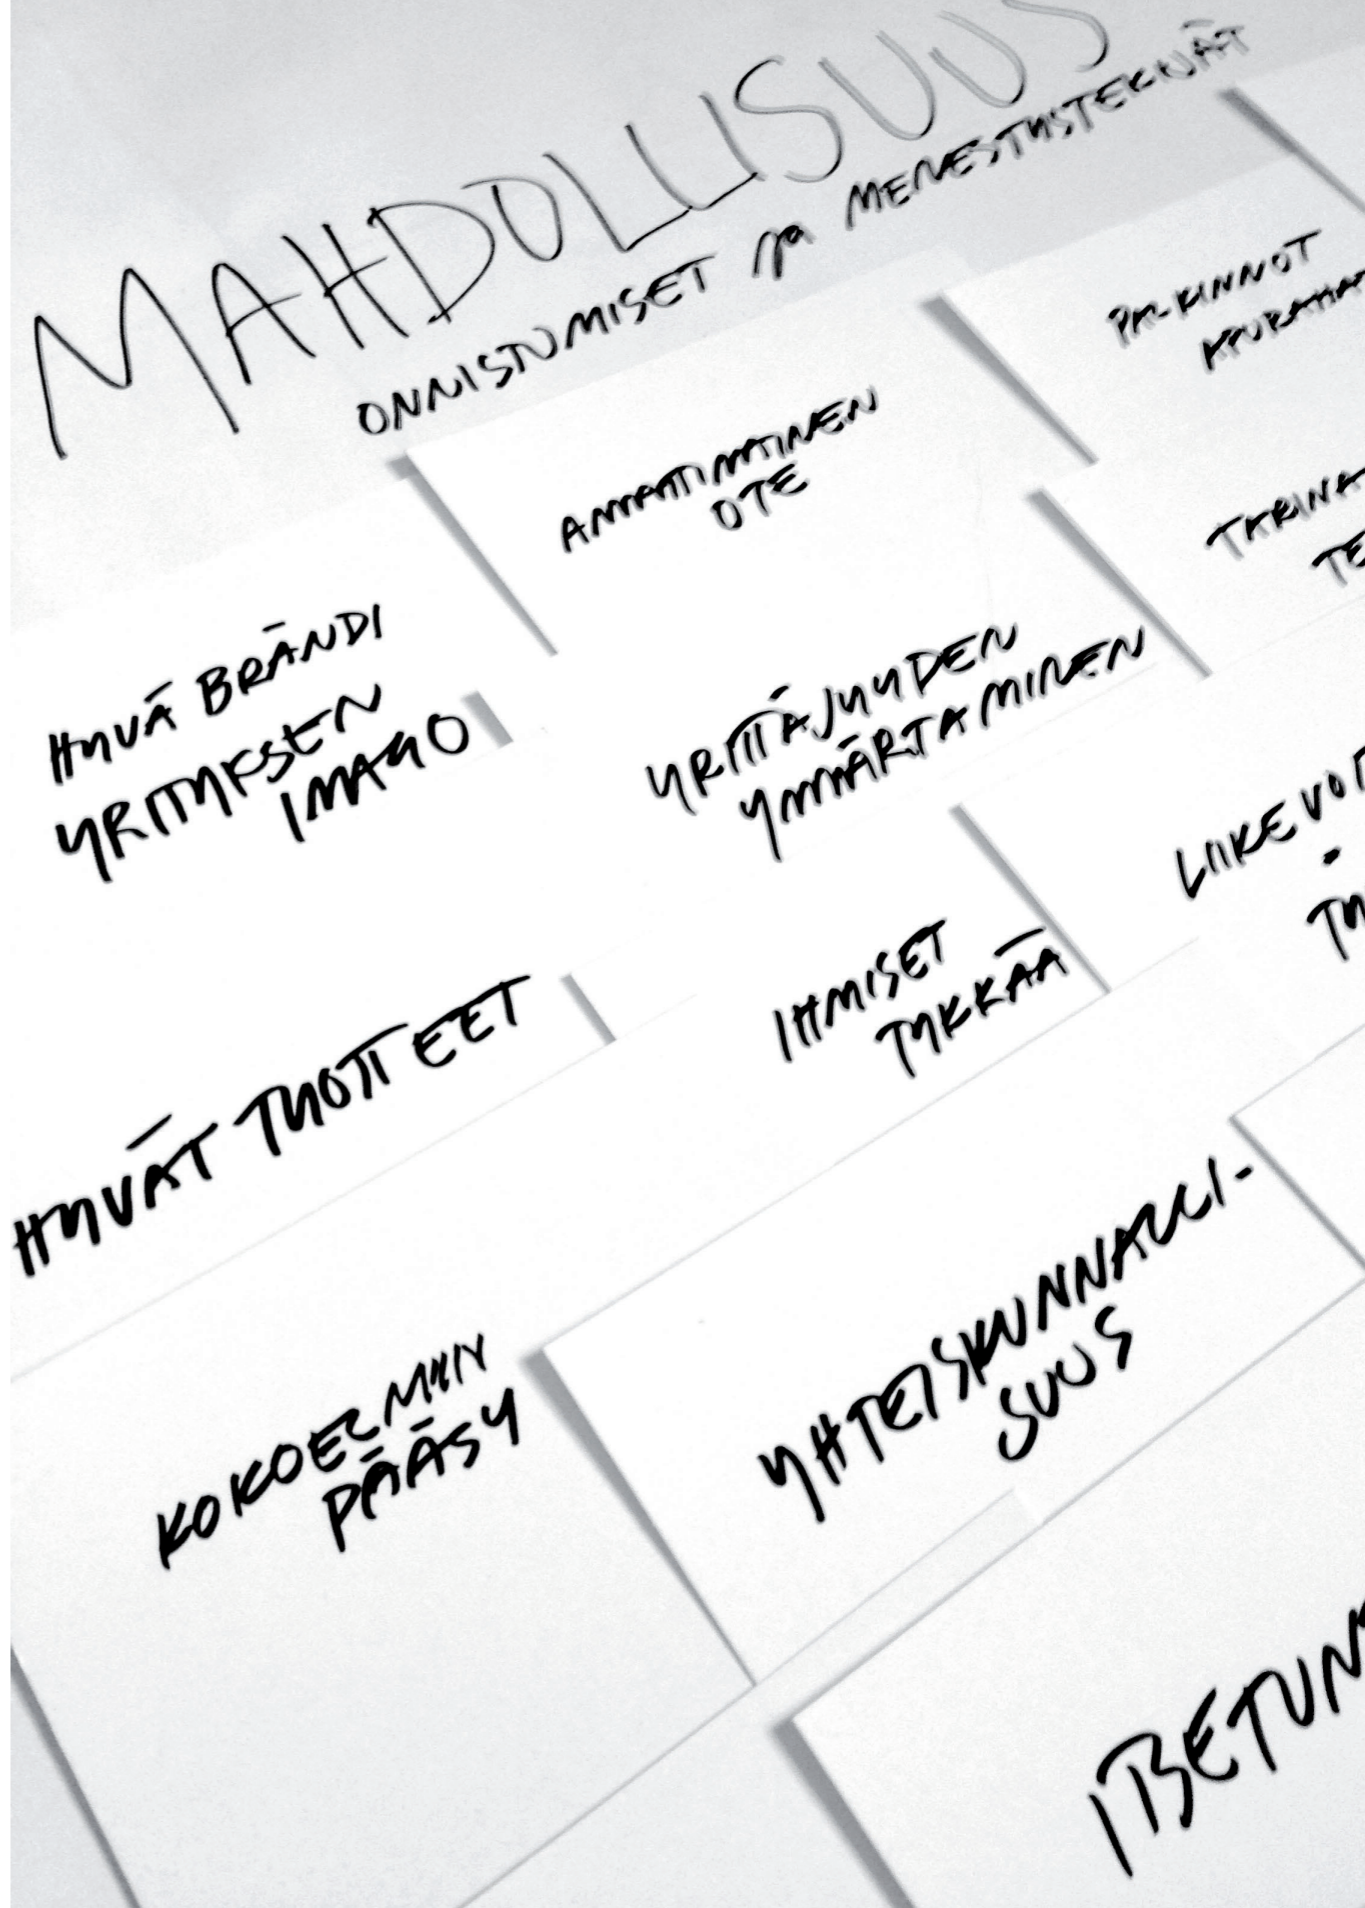 MAHDOLLISUUS
ONNISTUMISET ja MENESTYSTEKIJÄT
PALKINNOT
APURAHAT
AMMATTIMAINEN
OTE
TARINA
TE
HYVÄ BRÄNDI
YRITYKSEN
IMAGO
YRITTÄJYYDEN
YMMÄRTAMINEN
LIIKEVOI
-
TY
IHMISET
TYKKÄÄ
HYVÄT TUOTTEET
YHTEISKUNNALLI-
SUUS
KOKOELMIIN
PÄÄSY